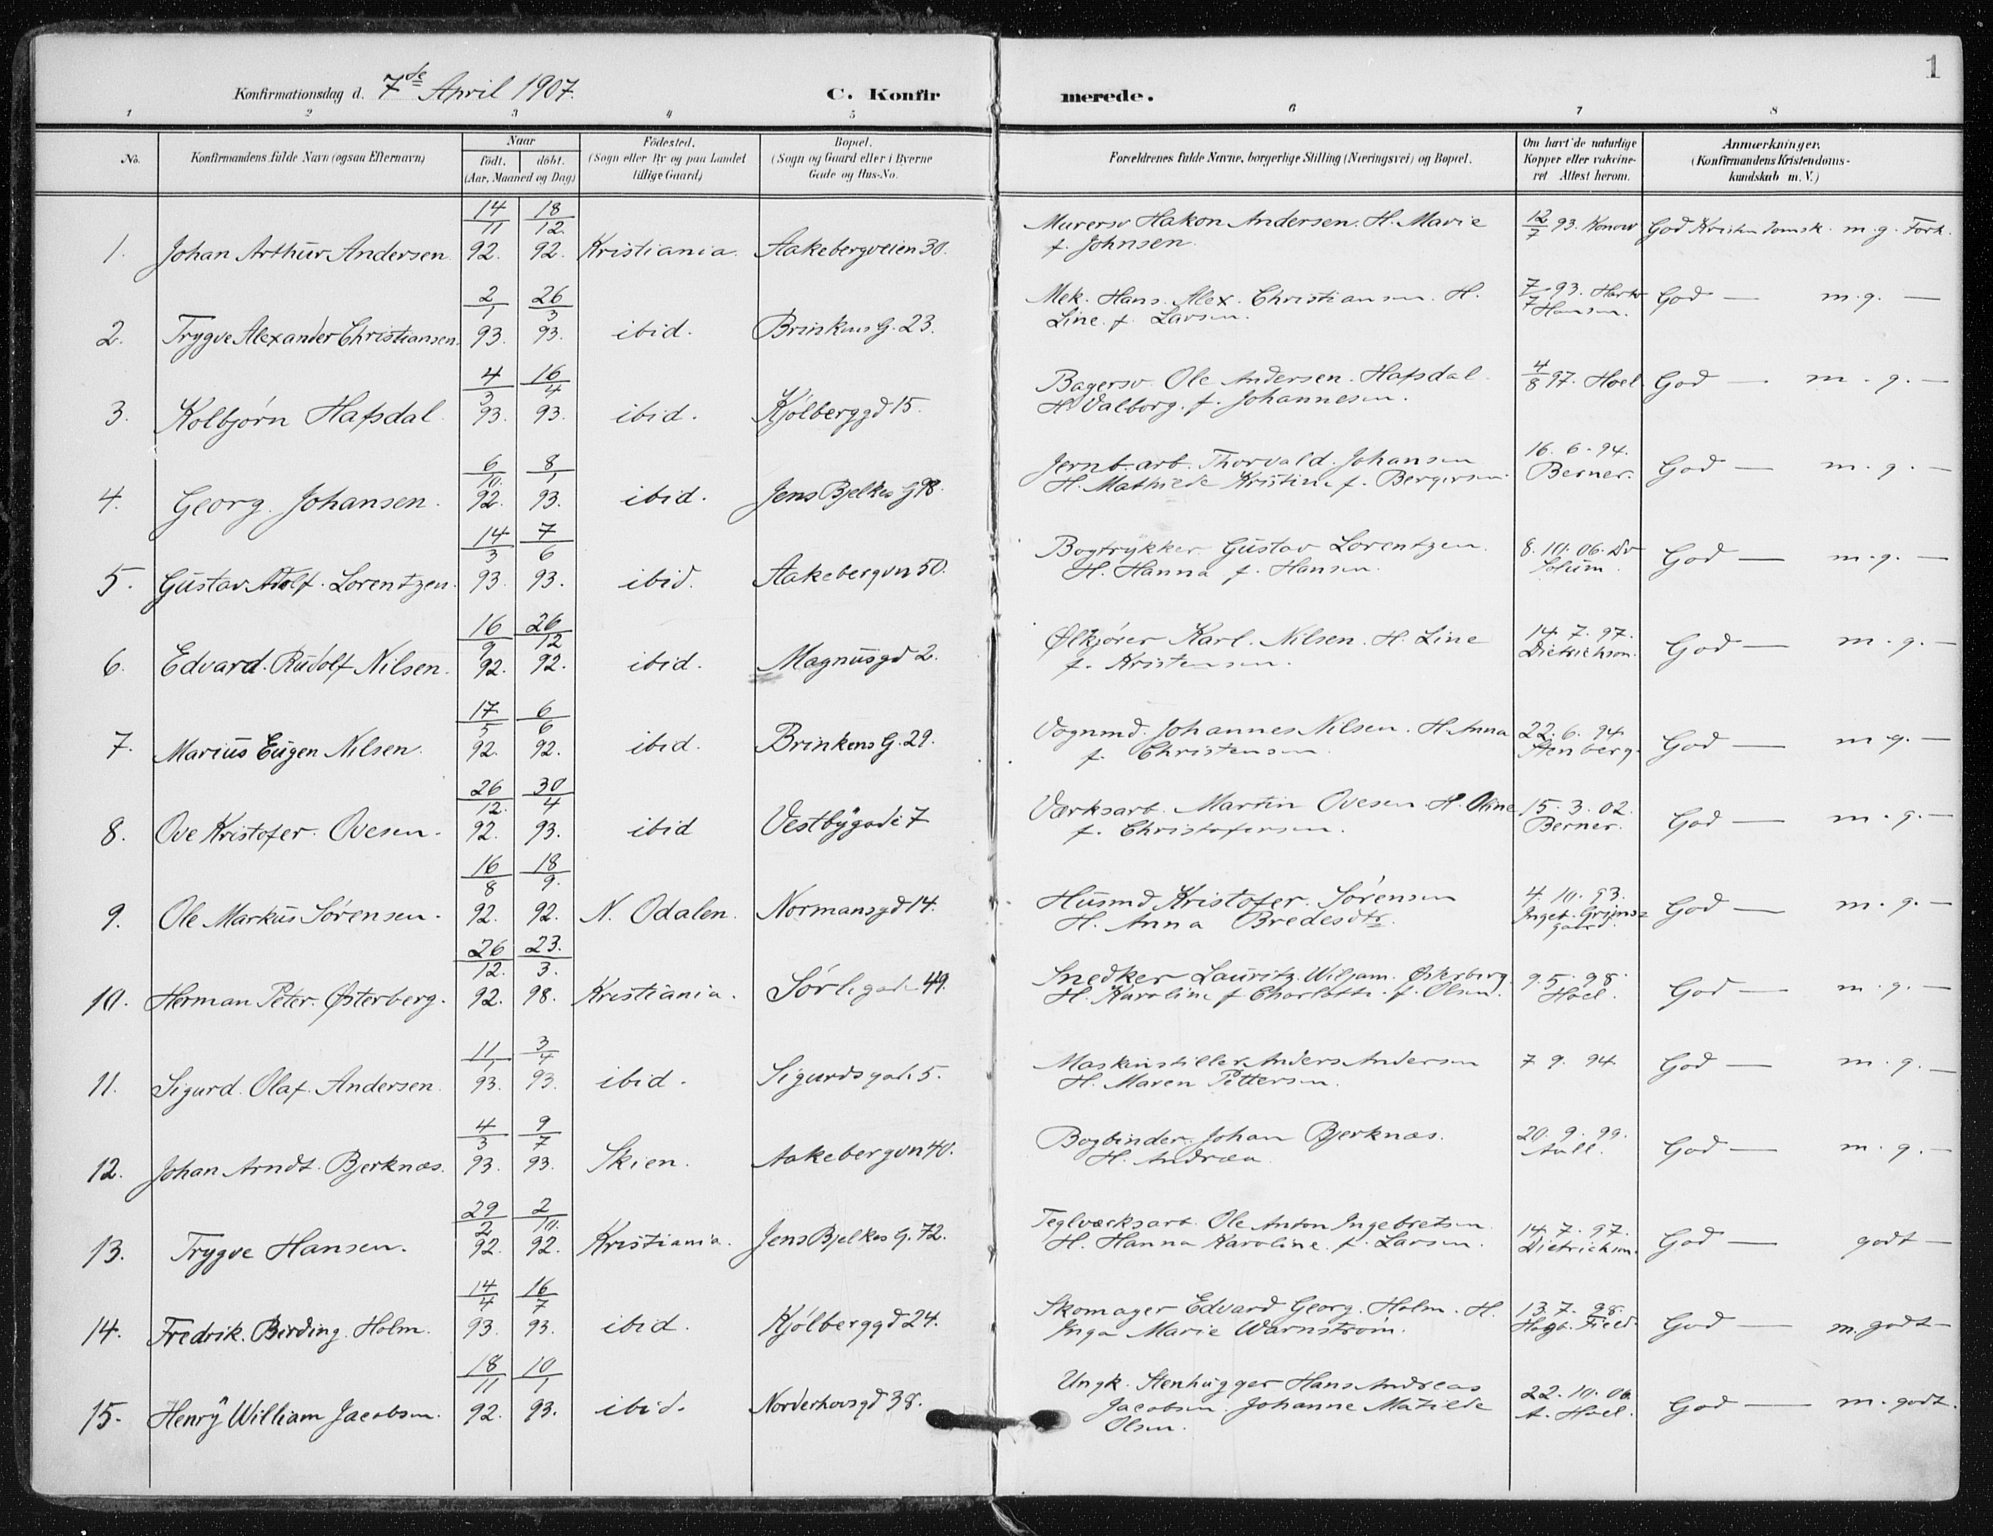 1
Konfirmationsdag d. 7de April 1907. C. Konfirmerede.
1 2 3 4 5 6 7 8
No. Konfirmandens fulde Navn (ogsaa Efternavn) Naar födt. döbt. (Aar, Maaned og Dag) Födested. (Sogn eller By og paa Landet tillige Gaard) Bopæl. (Sogn og Gaard eller i Byerne Gade og Hus-No. Forældrenes fulde Navne, borgerlige Stilling (Næringsvei) og Bopæl. Om havt de naturlige Kopper eller vakcineret Attest herom. Anmærkninger. (Konfirmandens Kristendomskundskab m. V.)
1. Johan Arthur Andersen 14/11 92. 18/12 92. Kristiania. Aakebergveien 30. Murersv Hakon Andersen. H. Marie f. Johnsen. 12/7 93. Konow God Kristendomsk. m. g. Forh.
2. Trygve Alexander Christiansen. 2/1 93. 26/3 93. ibid. Brinkens G. 23. Mek. Hans. Alex. Christiansen. H. Line. f. Larsen. 7/7 93. Hansen. God — m.g. —
3. Kolbjørn Hafsdal 4/3 93. 16/4 93. ibid. Kjølberggd 15. Bagersv. Ole Andersen. Hafsdal. H. Valborg. f. Johannesen. 4/8 97. Hoel God — m. g. —
4. Georg Johansen. 6/10. 92. 8/1 93. ibid. Jens Bjelkes G 98. Jernb. arb. Thorvald. Johansen H. Mathilde Kristine f. Bergersen. 16. 6. 94. Berner. God — m. g. —
5. Gustav Adolf. Lorentzen. 14/3 93. 7/6 93. ibid. Aakebergvn 50. Bogtrykker Gustav Lorentzen. H. Hanna f. Hansen. 8. 10. 06. Dr Solum. God — m.g. —
6. Edvard. Rudolf Nilsen. 16/9 92. 26/12 92. ibid. Magnusgd 2. Ølkjører Karl Nilsen. H. Line f. Kristensen. 14. 7. 97. Dietrichson. God — m. g. —
7. Marius Eugen Nilsen. 17/5 92. 6/6 92. ibid. Brinkens G. 29. Vognmd. Johannes Nilsen. H. Anna f. Christensen. 22. 6. 94 Stenberg. God — m g. —
8. Ove Kristofer. Ovesen. 26/12. 92. 30/4 93. ibid Vestbygade 7 Værksarb. Martin Ovesen H. Oline f. Christofersen. 15. 3. 02. Berner. God — m. g. —
9. Ole Markus Sørensen. 16/8 92. 18/9. 92. N. Odalen. Normansgd 14. Husmd Kristofer. Sørensen H. Anna Bredesdtr. 4. 10. 93. Ingeb. Grimsgaard. God — m. g. —
10. Herman Peter. Østerberg. 26/12. 92. 23./3. 98. Kristiania. Sørligade 49. Snedker Lauritz. Wiljam. Østerberg. H. Karoline f Charlotte. f. Olsen. 9. 5. 98. Hoel. God — m. g. —
11. Sigurd. Olaf. Andersen. 11/1 93. 3/4 93. ibid. Sigurdsgade 5. Maskinstiller. Anders Andersen H. Maren Pettersen. 7 9. 94 God — m. g. —
12. Johan Arndt. Bjerknæs. 4/3 93. 9/7 93. Skien. Aakebergvn 40. Bogbinder. Johan Bjerknæs. H. Andrea. 20. 9. 99. Aall. God — m. g. —
13. Trygve Hansen. 29/2 92. 2/10. 92. Kristiania. Jens Bjelkes G. 72. Teglværksarb. Ole Anton Ingebretsen. H. Hanna Karoline. f. Larsen. 14. 7. 97. Dietrichson. God — godt —
14. Fredrik. Birding. Holm. 14/4 93. 16/7 93. ibid. Kjølberggd 24. Skomager Edvard Georg. Holm. H. Inga Marie Warnstrøm. 13. 7. 98. God — m. godt —
15. Henry William Jacobsen. 18/11 92. 10/1 93. ibid. Norderhovsgd 38. Ungk. Stenhugger Hans Andreas Jacobsen. Johanne Matilde Olsen. 22. 10. 06 A. Hoel. God — m. godt.